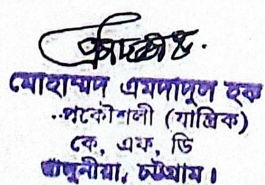 মোহাম্মদ এমদাদুল হক
..প্রকৌশলী (যান্ত্রিক)
কে, এফ, ডি
চট্টগ্রাম।